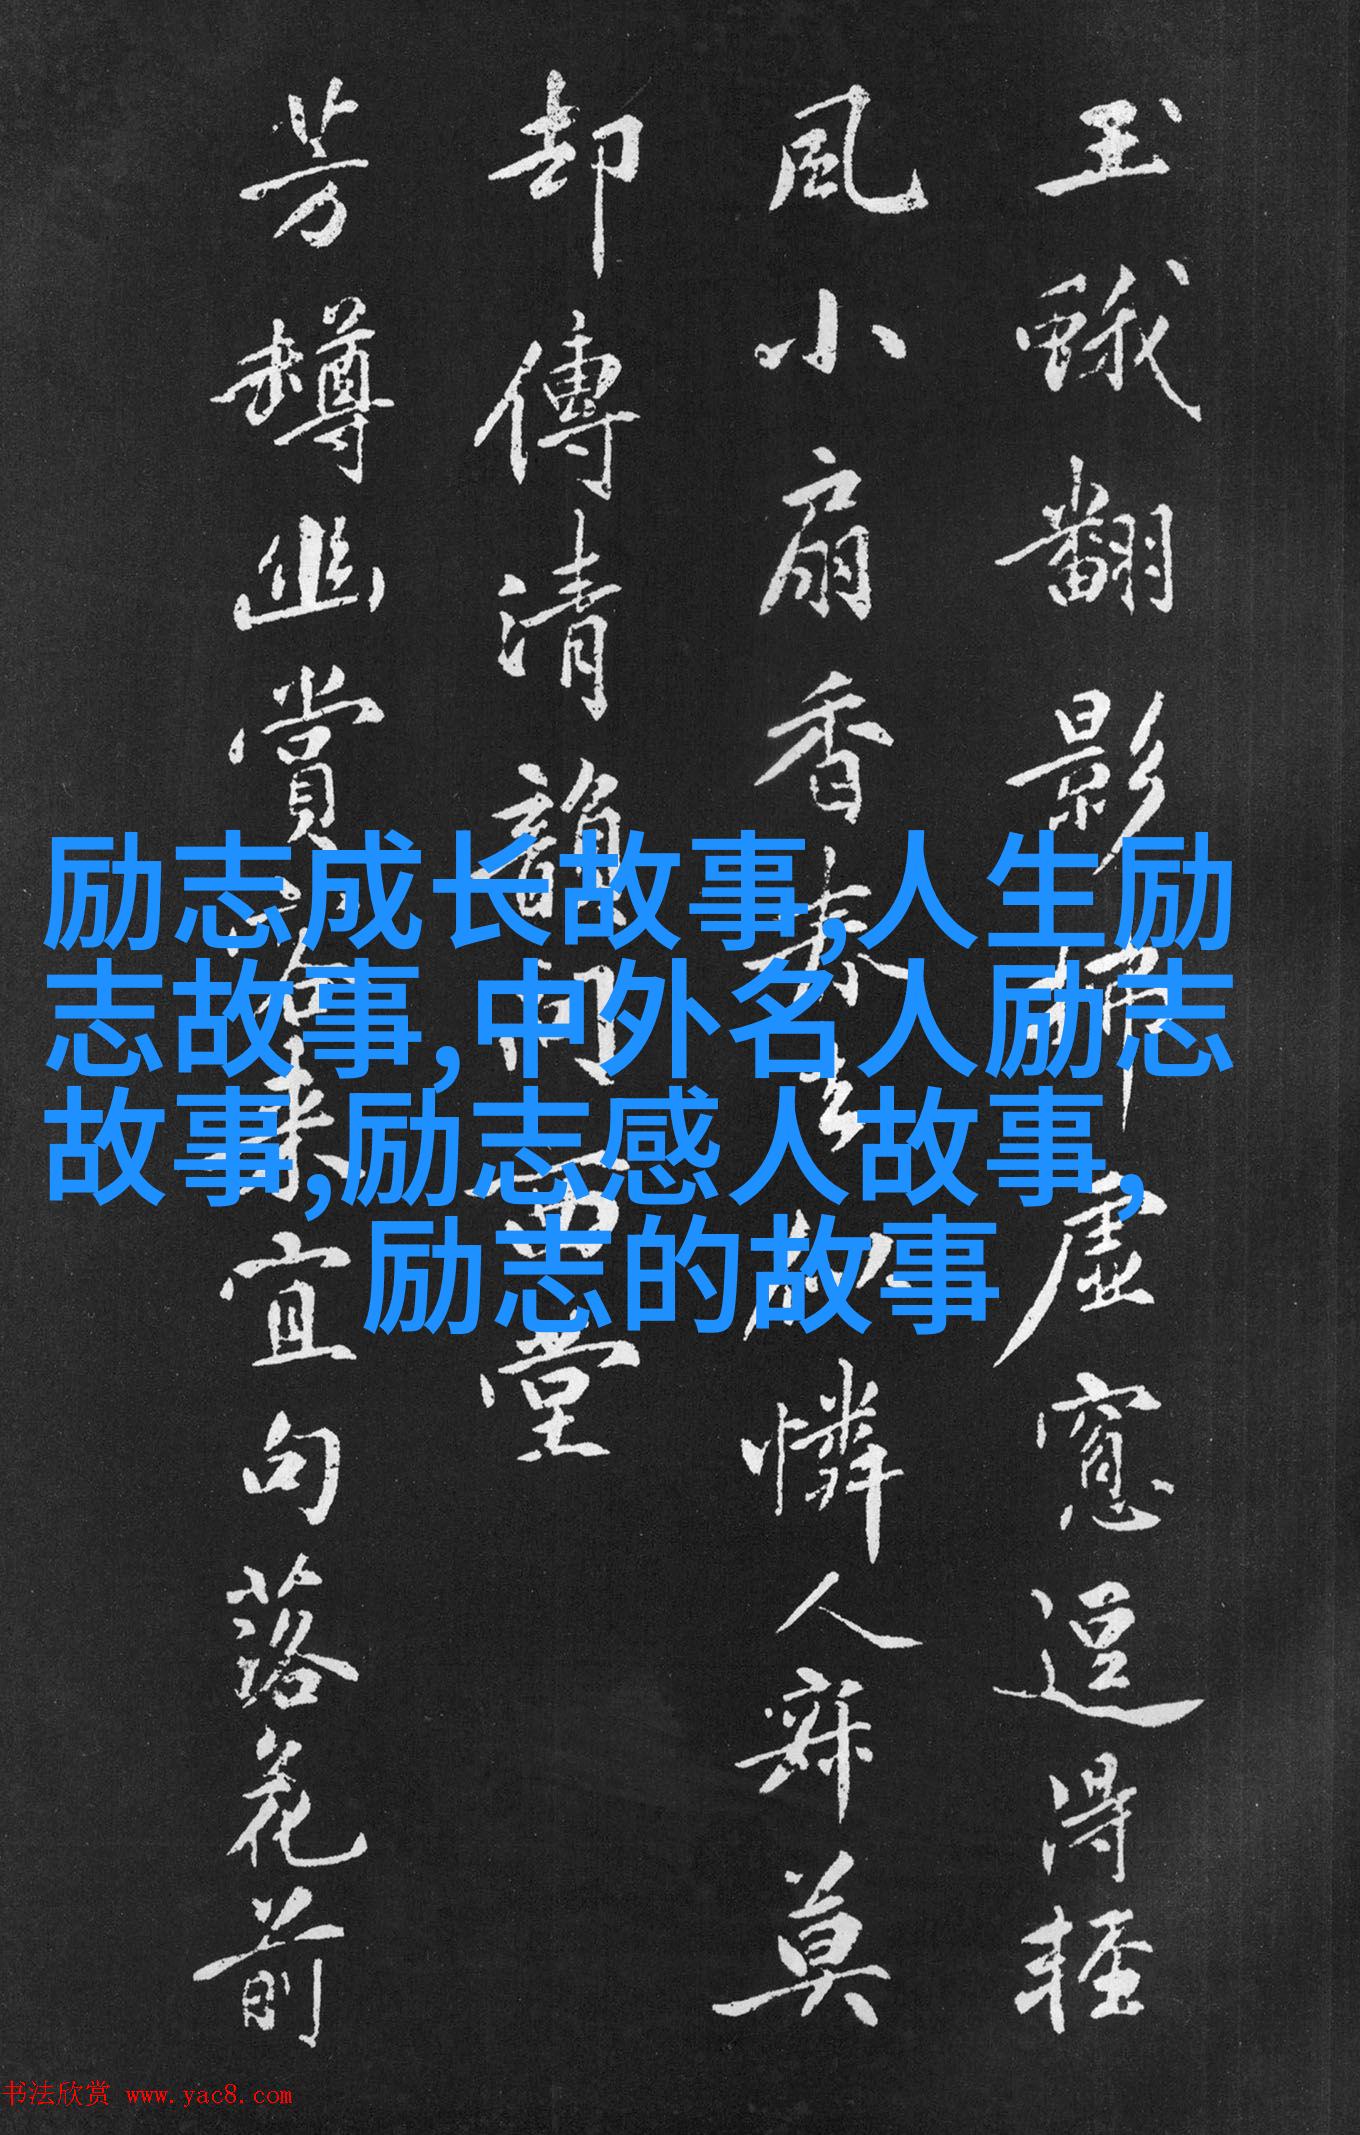 玉蛾翻影虛窓逗得輕
風小扇香憐人寐莫
却傳清韻西堂
芳樽幽賞來宜句落花前
励志成长故事,人生励
志故事,中外名人励志
故事,励志感人故事,
励志的故事
书法欣赏 www.yac8.com